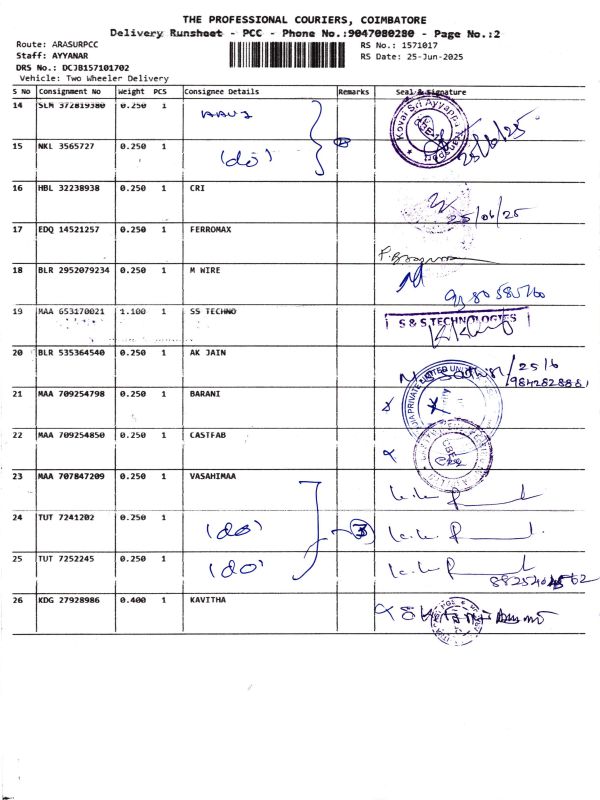 THE PROFESSIONAL COURIERS, COIMBATORE
Delivery Runsheet - PCC - Phone No.:9047080280 - Page No.:2
Route: ARASURPCC RS No.: 1571017
Staff: AYYANAR RS Date: 25-Jun-2025
DRS No.: DCJB157101702
Vehicle: Two Wheeler Delivery
S No Consignment No Weight PCS Consignee Details Remarks Seal & Signature
14 SLM 372819380 0.250 1
Kovai Sri Ayyappa
25/6/25
15 NKL 3565727 0.250 1 (do)
16 HBL 32238938 0.250 1 CRI
25/06/25
17 EDQ 14521257 0.250 1 FERROMAX
18 BLR 2952079234 0.250 1 M WIRE
19 MAA 653170021 1.100 1 SS TECHNO
S & S TECHNOLOGIES
20 BLR 535364540 0.250 1 AK JAIN
25/6
9842828881
21 MAA 709254798 0.250 1 BARANI
22 MAA 709254850 0.250 1 CASTFAB
23 MAA 707847209 0.250 1 VASAHIMAA
24 TUT 7241202 0.250 1 (do) 3
25 TUT 7252245 0.250 1 (do)
26 KDG 27928986 0.400 1 KAVITHA